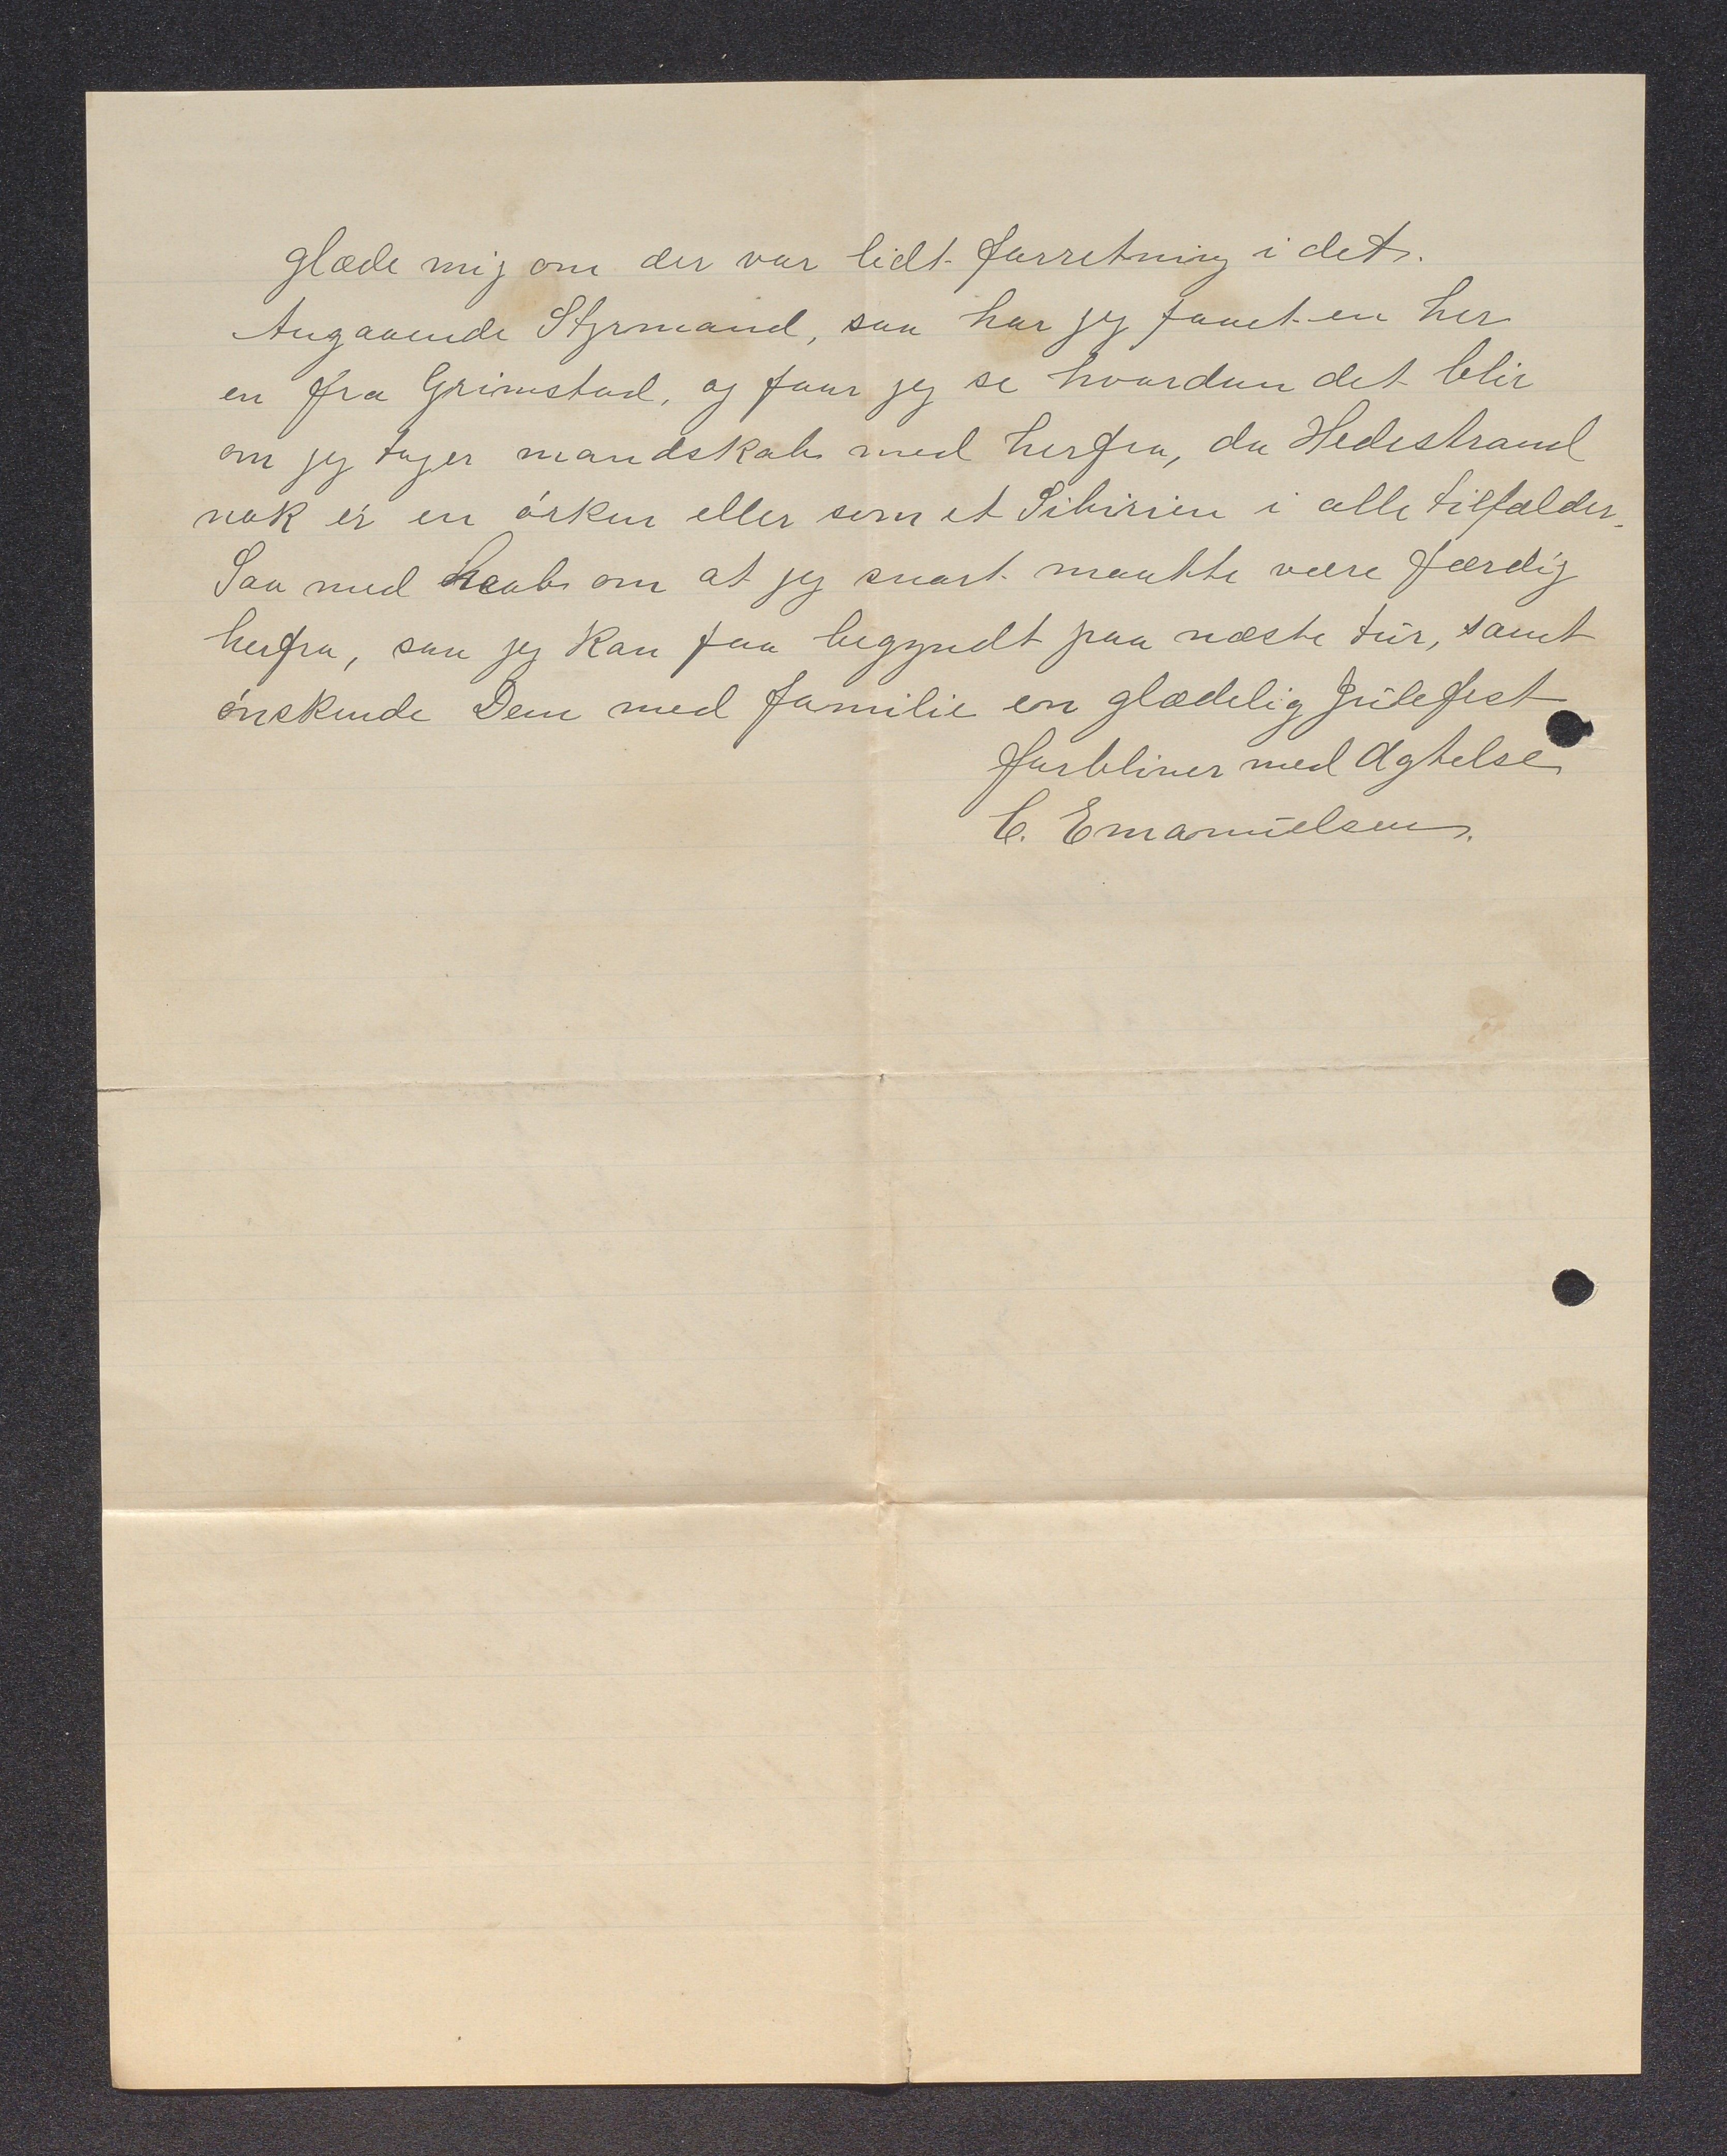 glæde mig om der var lidt forretning i det.
Angaaende Styrmand, saa har jeg faaet en her
en fra Grimstad, og faar jeg se hvordan det blir
om jeg tager mandskab med herfra, da Hedestrand
nok er en ørken eller som et Sibirien i alle tilfælder.
Saa med haab om at jeg snart maatte være færdig
herfra, saa jeg kan faa begyndt paa næste tur, samt
ønskende Dem med familie en glædelig Julefest
forbliver med Agtelse
C. Emanuelsen.